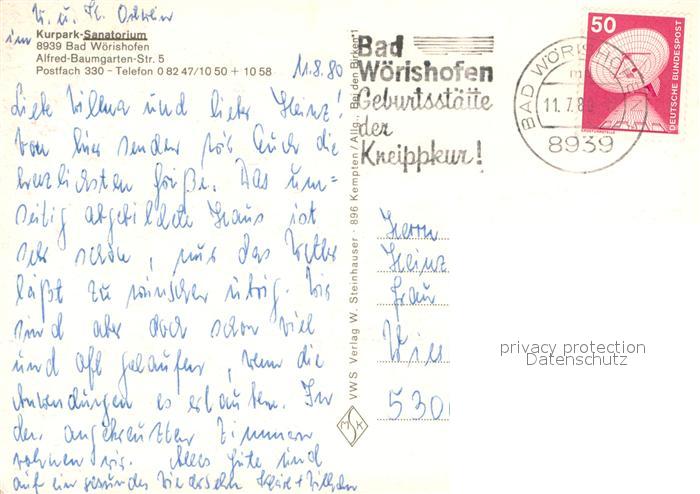 Kurpark-Sanatorium
im
8939 Bad Wörishofen
Alfred-Baumgarten-Str. 5
Postfach 330 - Telefon 0 82 47/10 50 + 10 58
11.8.80
Liebe Wilma und lieber Heinz!
Von hier senden wir Euch die
herzlichsten Grüße. Das um=
seitig abgebildete Haus ist
sehr schön, nur das Wetter
läßt zu wünschen übrig. Wir
sind aber doch schon viel
und oft gelaufen, wenn die
Anwendungen es erlauben. In
den angekreuzten Zimmern
wohnen wir. Alles Gute und
auf ein gesundes Wiedersehn
VWS Verlag W. Steinhauser · 896 Kempten / Allg., Bei den Birken 1
Bad
Wörishofen
Geburtsstätte
der
Kneippkur!
BAD WÖRISHOFEN
11.7.8
8939
50
DEUTSCHE BUNDESPOST
Herrn
Heinz
Frau
530
privacy protection
Datenschutz